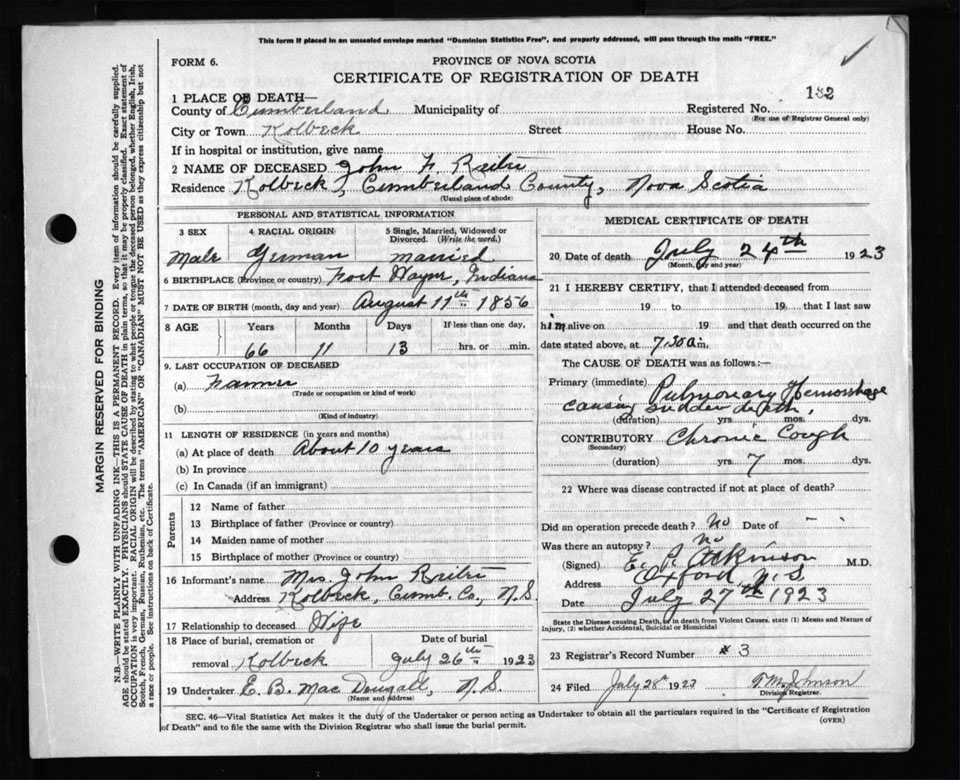 This form if placed in an unsealed envelope marked "Dominion Statistics Free", and properly addressed, will pass through the mails "FREE."
FORM 6.
PROVINCE OF NOVA SCOTIA
CERTIFICATE OF REGISTRATION OF DEATH
132
1 PLACE OF DEATH—
County of Cumberland Municipality of Registered No.
(For use of Registrar General only)
City or Town Kolbeck Street House No.
If in hospital or institution, give name
2 NAME OF DECEASED John F.
Residence Kolbeck, Cumberland County, Nova Scotia
(Usual place of abode)
PERSONAL AND STATISTICAL INFORMATION
3 SEX 4 RACIAL ORIGIN 5 Single, Married, Widowed or Divorced. (Write the word.)
Male German married
6 BIRTHPLACE (Province or country) Fort Wayne, Indiana
7 DATE OF BIRTH (month, day and year) August 11th 1856
8 AGE Years Months Days If less than one day,
66 11 13 hrs. or min.
9. LAST OCCUPATION OF DECEASED
(a) Farmer
(Trade or occupation or kind of work)
(b)
(Kind of industry)
11 LENGTH OF RESIDENCE (in years and months)
(a) At place of death About 10 years
(b) In province
(c) In Canada (if an immigrant)
Parents
12 Name of father
13 Birthplace of father (Province or country)
14 Maiden name of mother
15 Birthplace of mother (Province or country)
16 Informant's name Mrs. John
Address Kolbeck, Cumb. Co., N.S.
17 Relationship to deceased Wife
18 Place of burial, cremation or Date of burial
removal Kolbeck July 26th 1923
19 Undertaker E. B. Mac Dougall, N.S.
(Name and address)
MEDICAL CERTIFICATE OF DEATH
20 Date of death July 24th 1923
(Month, day and year)
21 I HEREBY CERTIFY, that I attended deceased from
19 to 19 that I last saw
him alive on 19 and that death occurred on the
date stated above, at 7.30 a.m.
The CAUSE OF DEATH was as follows:—
Primary (immediate) Pulmonary Hemorrhage
causing sudden death,
(duration) yrs mos. dys.
CONTRIBUTORY Chronic Cough
(Secondary)
(duration) yrs. 7 mos. dys.
22 Where was disease contracted if not at place of death?
Did an operation precede death? No Date of
Was there an autopsy? No
(Signed) E. P. Atkinson M.D.
Address Oxford N.S
Date July 27th 1923
State the Disease causing Death, or in death from Violent Causes, state (1) Means and Nature of Injury, (2) whether Accidental, Suicidal or Homicidal
23 Registrar's Record Number #3
24 Filed July 28 1923 Johnson
Division Registrar.
SEC. 46—Vital Statistics Act makes it the duty of the Undertaker or person acting as Undertaker to obtain all the particulars required in the "Certificate of Registration
of Death" and to file the same with the Division Registrar who shall issue the burial permit.
(OVER)
MARGIN RESERVED FOR BINDING
N.B.—WRITE PLAINLY, WITH UNFADING INK—THIS IS A PERMANENT RECORD. Every item of information should be carefully supplied.
AGE should be stated EXACTLY. PHYSICIANS should STATE CAUSE OF DEATH in plain terms, so that it may be properly classified. Exact statement of
OCCUPATION is very important. RACIAL ORIGIN will be described by stating to what people or tongue the deceased person belonged, whether English, Irish,
Scotch, French, German, Russian, Ruthenian, etc. The terms "AMERICAN" or "CANADIAN" MUST NOT BE USED as they express citizenship but not
a race or people. See instructions on back of Certificate.